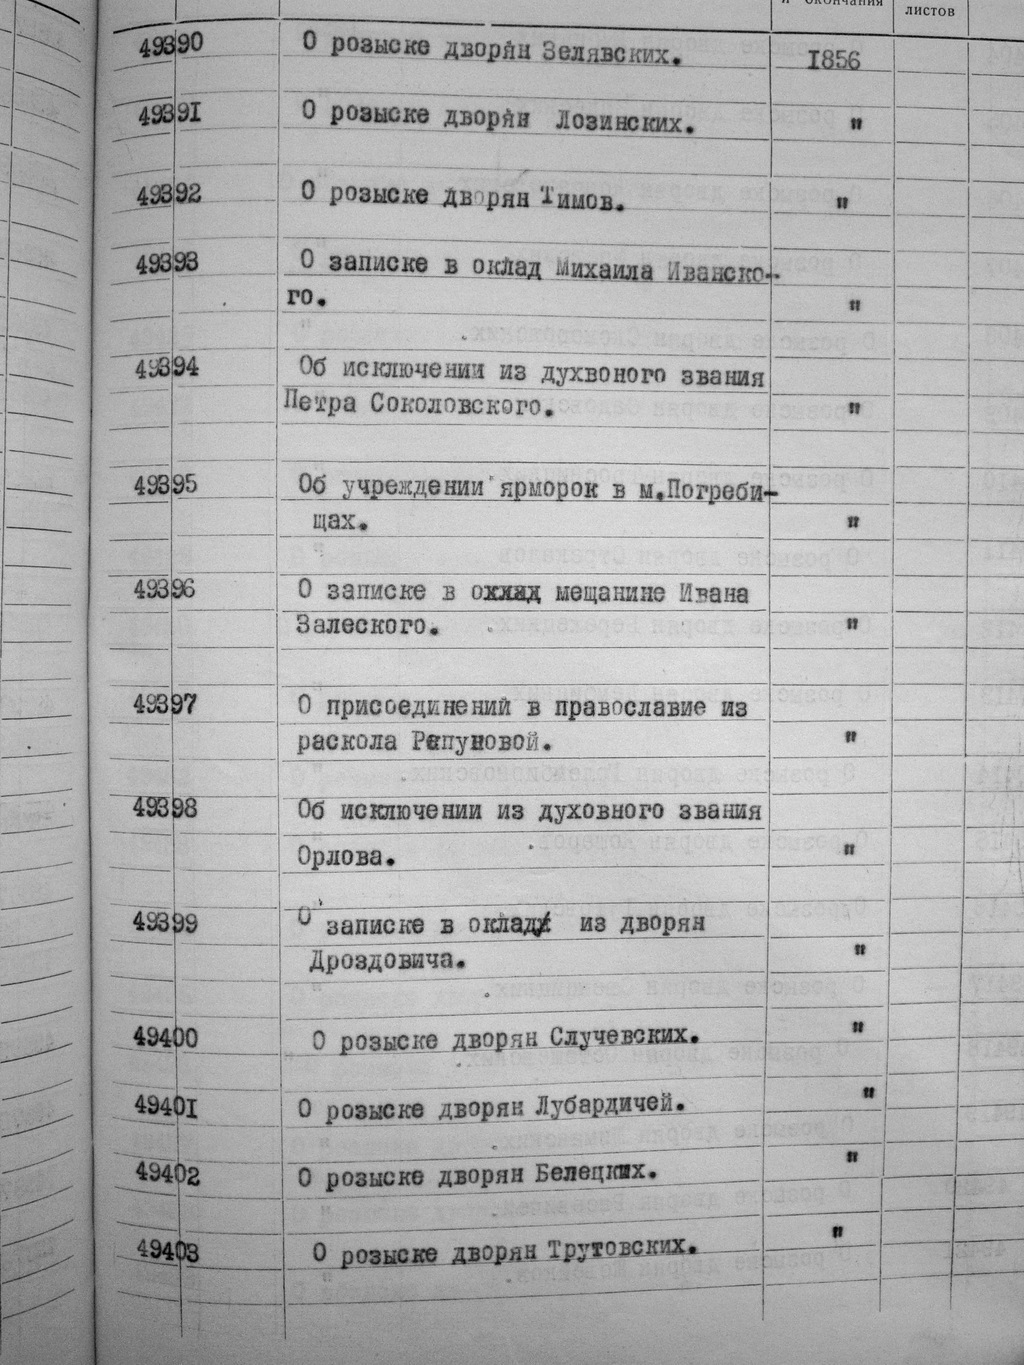 и окончания листов
49390 О розыске дворян Зелявских. 1856
49391 О розыске дворян Лозинских. "
49392 О розыске дворян Тимов. "
49393 О записке в оклад Михаила Иванско-
го. "
49394 Об исключении из духвоного звания
Петра Соколовского. "
49395 Об учреждении ярморок в м.Погреби-
щах. "
49396 О записке в оклад мещанине Ивана
Залеского. "
49397 О присоединений в православие из
раскола Рапуновой. "
49398 Об исключении из духовного звания
Орлова. "
49399 О записке в оклад из дворян
Дроздовича. "
49400 О розыске дворян Случевских. "
49401 О розыске дворян Лубардичей. "
49402 О розыске дворян Белецких. "
49403 О розыске дворян Трутовских. "